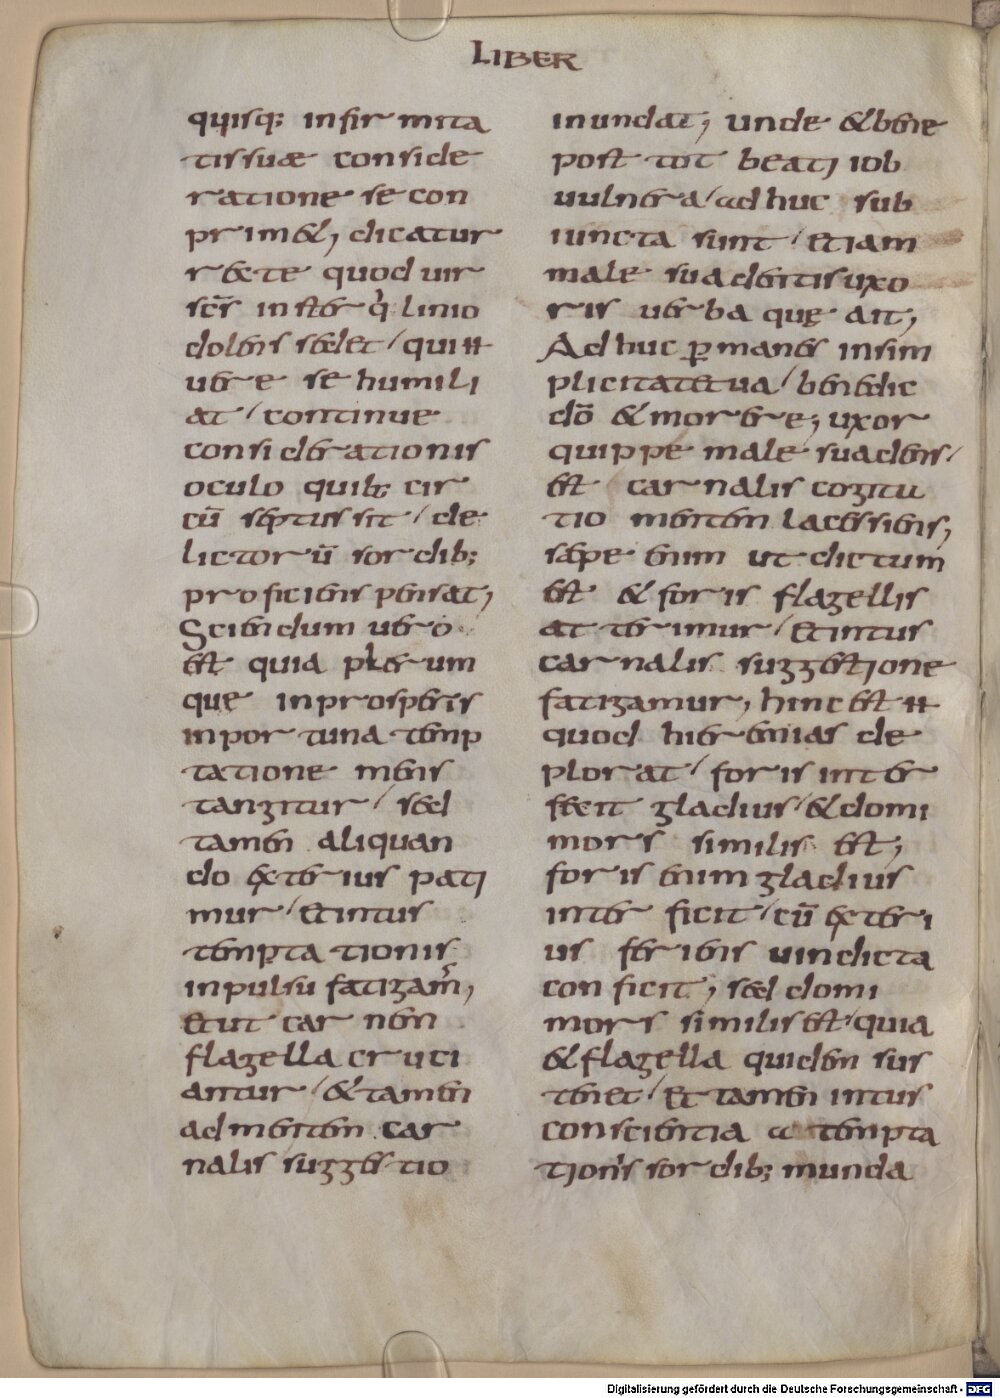 LIBER
quisq; infirmita
tis suæ conside
ratione se con
prim&, dicatur
recte quod uir
sc̄s in ster q̇linio
dolens sedet / qui ⁊
uere se humili
at / continue
considerationis
oculo quib; cir
cū septus sit / de
lictorū sordib;
proficiens pensat,
Sciendum uero
est quia plerum
que in prosperis
inportuna temp
tatione mens
tangitur / sed
tamen aliquan
do exterius pati
mur / et intus
temptationis
inpulsu fatigam̊,
et ut carnem
flagella cruci
antur / & tamen
ad mentem car
nalis suggestio
inundat, unde & bene
post tot beati iob
uulnera / adhuc sub
iuncta sunt / etiam
male suadentis uxo
ris uerba quę ait,
Adhuc ꝑmanes in sim
plicitate tua / benedic
dō & morere, uxor
quippe male suadens /
est carnalis cogita
tio mentem lacessens,
sæpe enim ut dictum
est & foris flagellis
atterimur / et intus
carnalis suggestione
fatigamur, hinc est ⁊
quod hieremias de
plorat / foris inter
fecit gladius / & domi
mors similis est,
foris enim gladius
inter ficit / cū exteri
us feriens uindicta
conficit, sed domi
mors similis est / quia
& flagella quidem sus
tenet / et tamen intus
conscientia a tempta
tionis sordib; munda
Digitalisierung gefördert durch die Deutsche Forschungsgemeinschaft - DFG